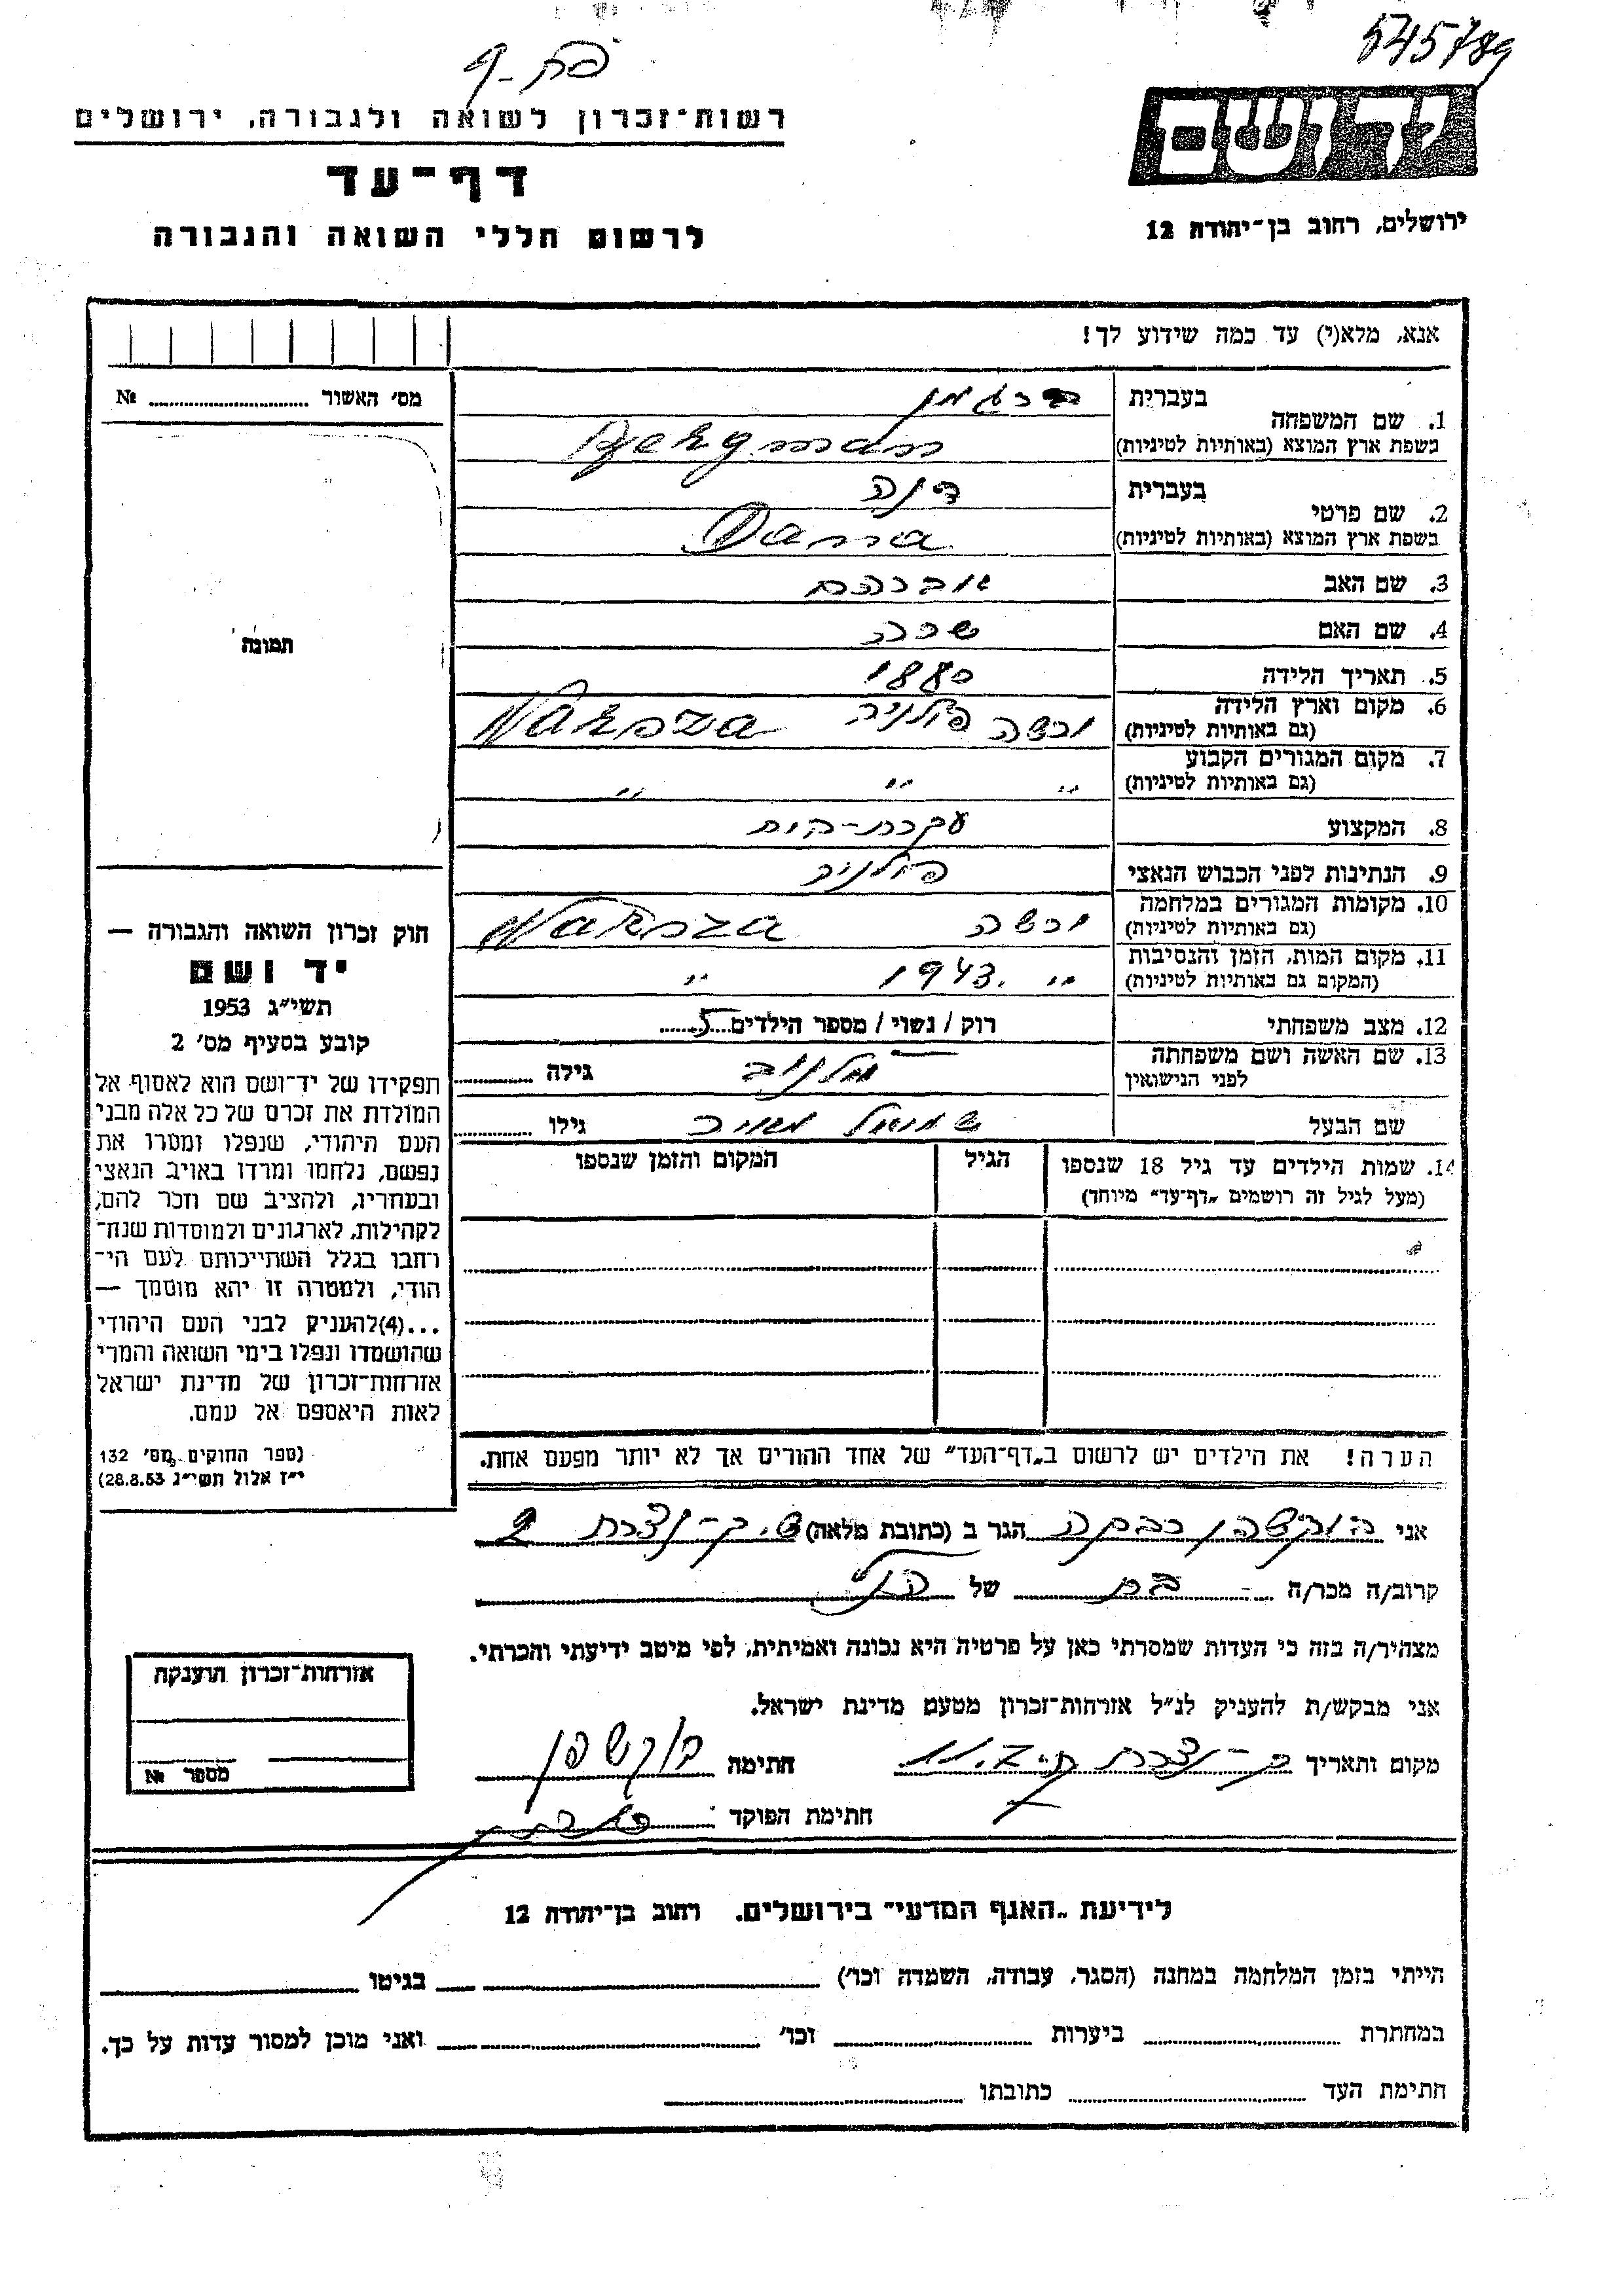 545789
פק-9
יד ושם
רשות־זכרון לשואה ולגבורה, ירושלים
דף־עד
לרשום חללי השואה והגבורה
ירושלים, רחוב בן־יהודה 12
אנא, מלא(י) עד כמה שידוע לך!
מס' האשור № 
תמונה
1. שם המשפחה בעברית ברגמן
בשפת ארץ המוצא (באותיות לטיניות) Bergman
2. שם פרטי בעברית דנה
בשפת ארץ המוצא (באותיות לטיניות) Dana
3. שם האב אברהם
4. שם האם שרה
5. תאריך הלידה 1880
6. מקום וארץ הלידה ורשה פולניה Warsza
(גם באותיות לטיניות)
7. מקום המגורים הקבוע " " "
(גם באותיות לטיניות)
8. המקצוע עקרת-בית
9. הנתינות לפני הכבוש הנאצי פולניה
10. מקומות המגורים במלחמה ורשה Warsza
(גם באותיות לטיניות)
11. מקום המות, הזמן והנסיבות " 1943. "
(המקום גם באותיות לטיניות)
12. מצב משפחתי רוק / נשוי / מספר הילדים 5
13. שם האשה ושם משפחתה גילה
לפני הנישואין
שם הבעל שמואל מאיר גילו
14. שמות הילדים עד גיל 18 שנספו הגיל המקום והזמן שנספו
(מעל לגיל זה רושמים „דף־עד" מיוחד)
הערה! את הילדים יש לרשום ב„דף־העד" של אחד ההורים אך לא יותר מפעם אחת.
חוק זכרון השואה והגבורה —
יד ושם
תשי"ג 1953
קובע בסעיף מס' 2
תפקידו של יד־ושם הוא לאסוף אל
המולדת את זכרם של כל אלה מבני
העם היהודי, שנפלו ומסרו את
נפשם, נלחמו ומרדו באויב הנאצי
ובעוזריו, ולהציב שם וזכר להם,
לקהילות, לארגונים ולמוסדות שנח־
רחבו בגלל השתייכותם לעם הי־
הודי, ולמטרה זו יהא מוסמך —
...(4)להעניק לבני העם היהודי
שהושמדו ונפלו בימי השואה והמרי
אזרחות־זכרון של מדינת ישראל
לאות היאספם אל עמם.
(ספר החוקים מס' 132
י"ז אלול תשי"ג 28.8.53)
אני רבקה הגר ב (כתובת מלאה) נצרת
קרוב/ה מכר/ה בת של הנ"ל
מצהיר/ה בזה כי העדות שמסרתי כאן על פרטיה היא נכונה ואמיתית, לפי מיטב ידיעתי והכרתי.
אני מבקש/ת להעניק לנ"ל אזרחות־זכרון מטעם מדינת ישראל.
מקום ותאריך ק-נצרת חתימה
חתימת הפוקד
אזרחות־זכרון הוענקה
מספר №
לידיעת „האגף המדעי" בירושלים. רחוב בן־יהודה 12
הייתי בזמן המלחמה במחנה (הסגר, עבודה, השמדה וכו') בגיטו
במחתרת ביערות וכו' ואני מוכן למסור עדות על כך.
חתימת העד כתובתו